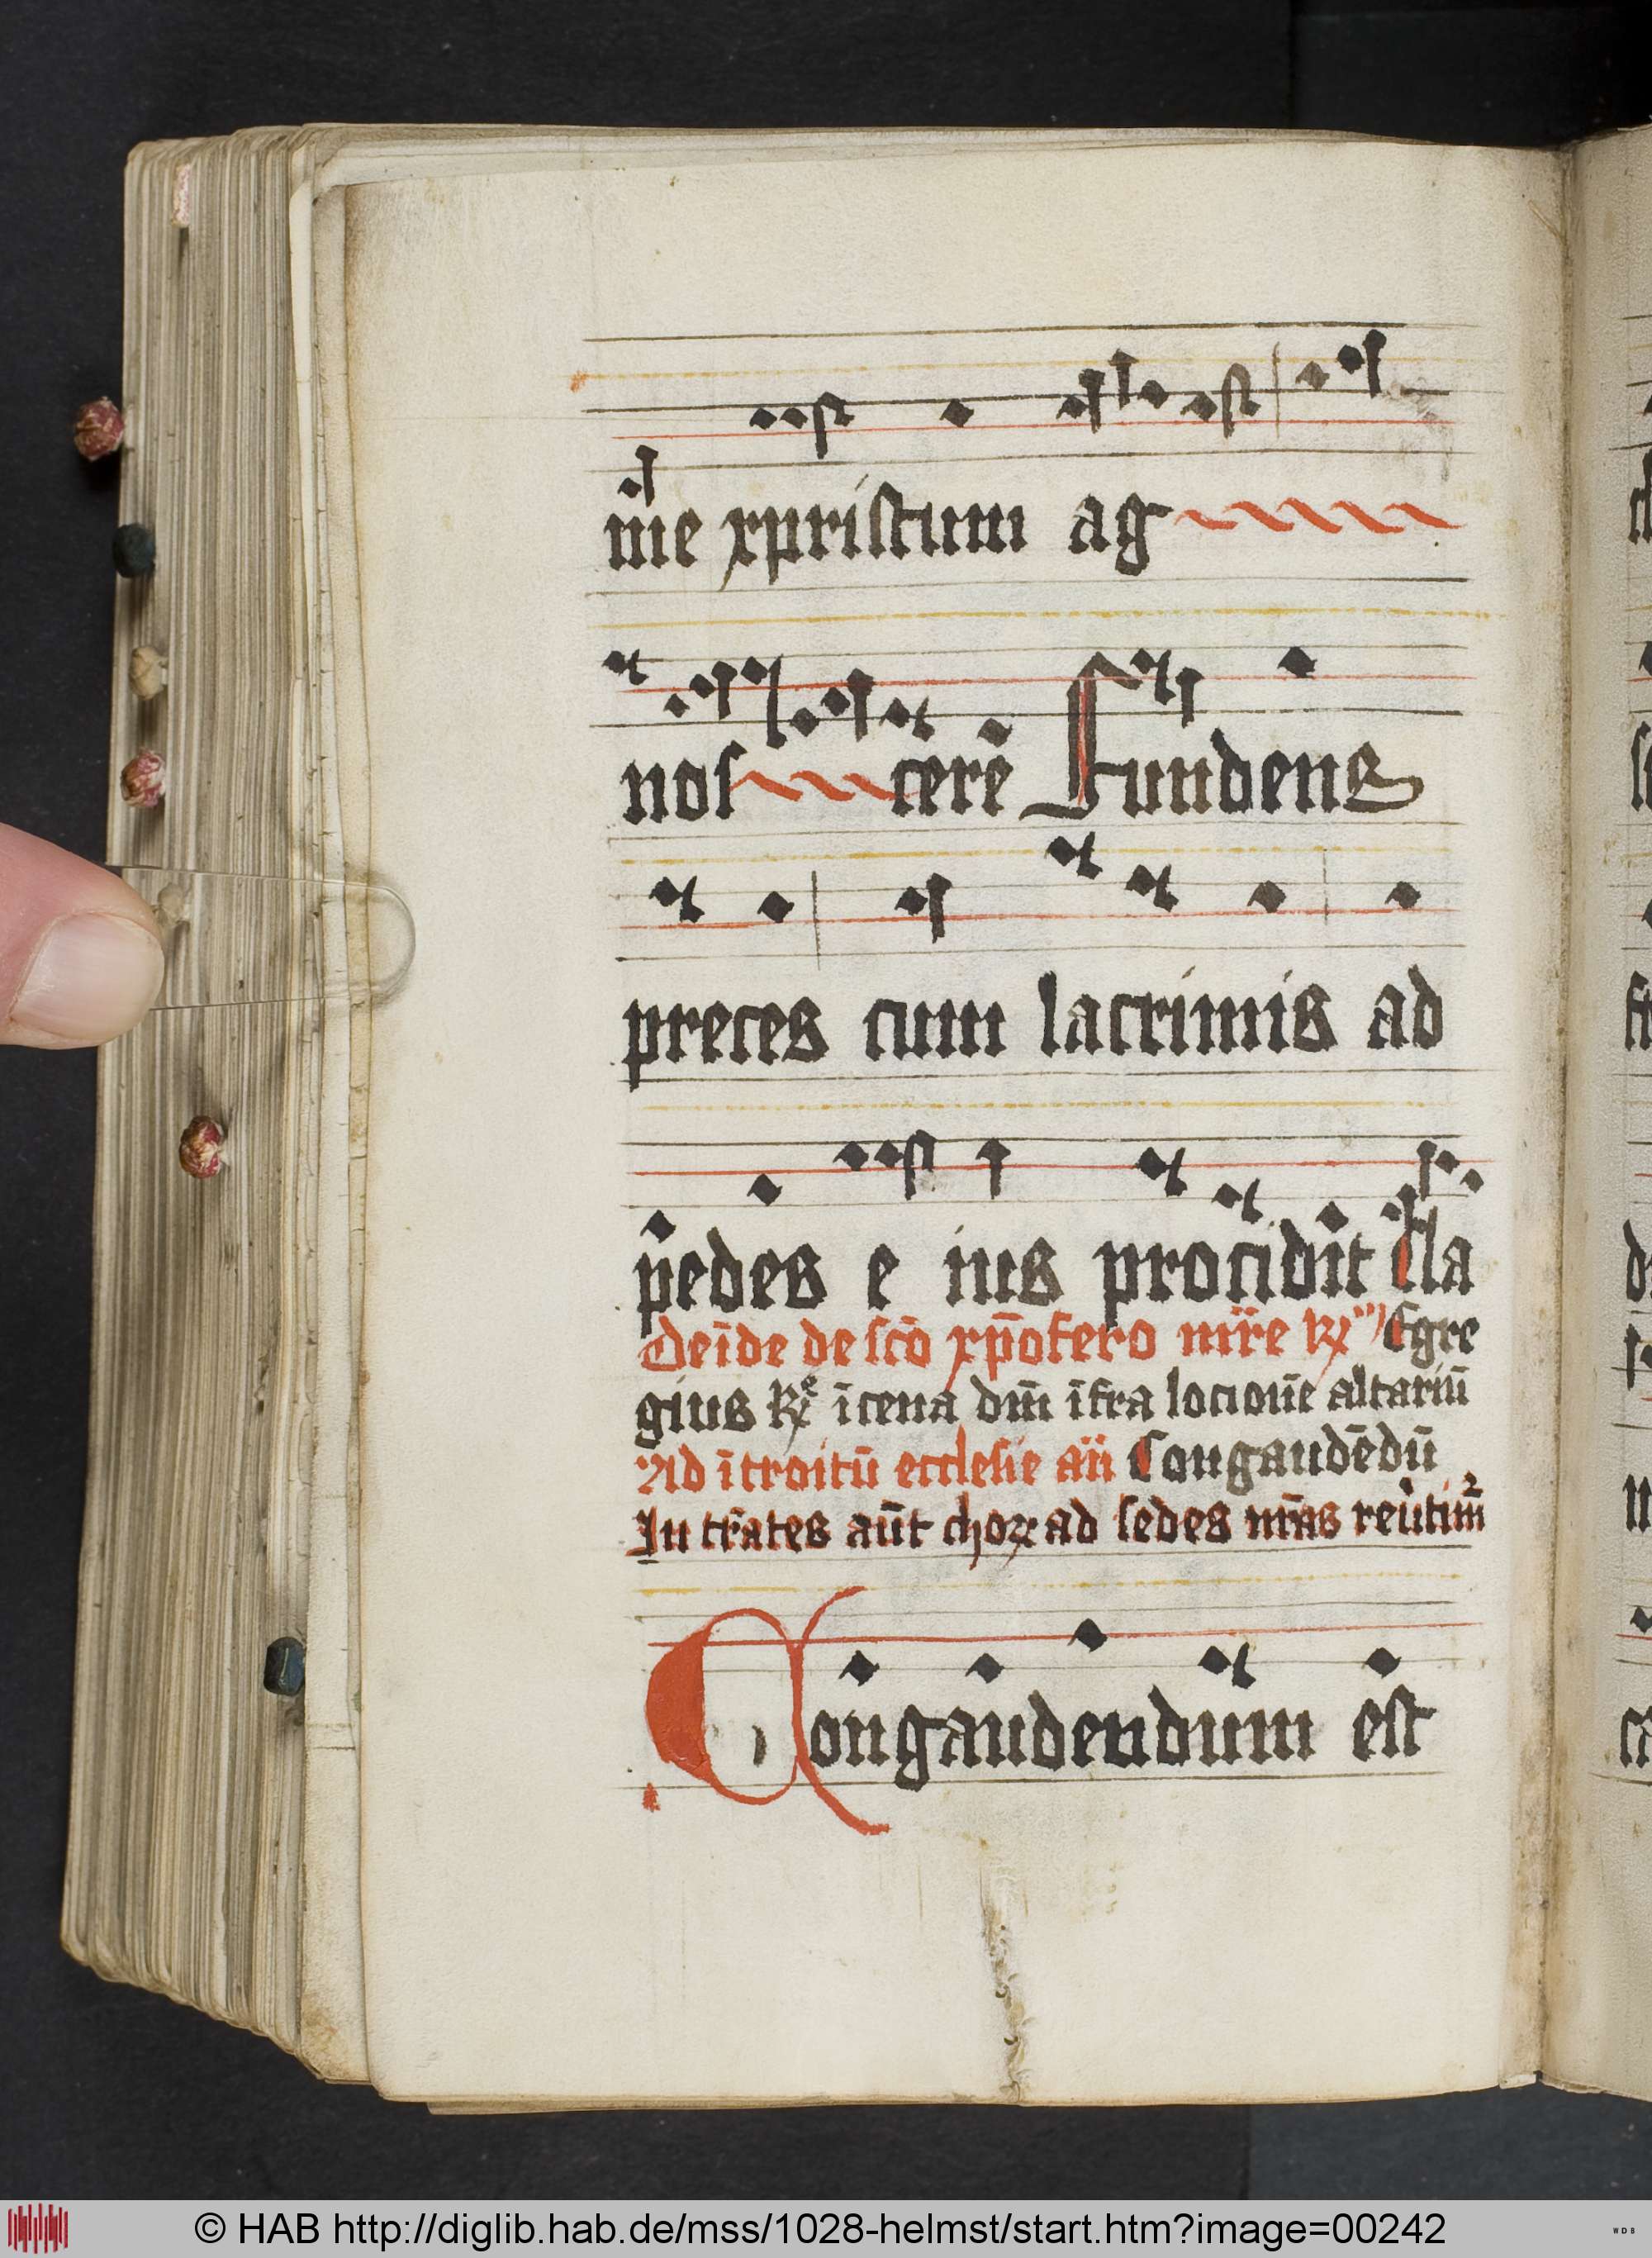 me xpristum ag
nosccē̄re Fundens
preces cum lacrimis ad
pedes e ius procidit Illa
Deīde de scō xp̄ofero m̄re R̄ Egre
gius R̄ īcena dm̄ īfra locionē altariū
Ad ītroitū ecclesie an̄ Congaudēdū
In trātes aūt chorꝫ ad sedes nr̄as
Congaudendum est
© HAB http://diglib.hab.de/mss/1028-helmst/start.htm?image=00242
WDB